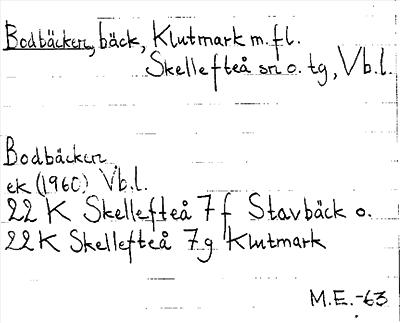 Bodbäcken, bäck, Klutmark m.fl.
Skellefteå sn o. tg, Vb.l.
Bodbäcken
ek (1960) Vb.l.
22 K Skellefteå 7 f Stavbäck o.
22 K Skellefteå 7g Klutmark
M.E.-63